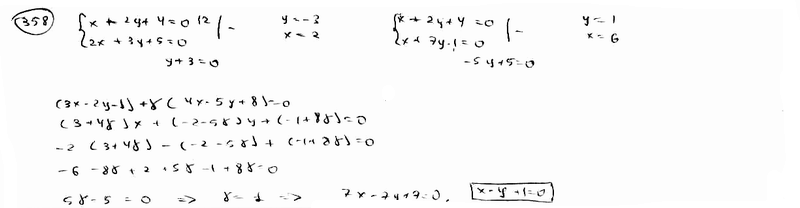 358 { x + 2y + 4 = 0 | 2 | - y = -3 { x + 2y + 4 = 0 | - y = 1
2x + 3y + 5 = 0 x = 2 x + 7y - 1 = 0 x = 6
y + 3 = 0 -5y + 5 = 0
(3x - 2y - 1) + γ(4x - 5y + 8) = 0
(3 + 4γ)x + (-2 - 5γ)y + (-1 + 8γ) = 0
-2(3 + 4γ) - (-2 - 5γ) + (-1 + 8γ) = 0
-6 - 8γ + 2 + 5γ - 1 + 8γ = 0
5γ - 5 = 0 => γ = 1 => 7x - 7y + 7 = 0. x - y + 1 = 0